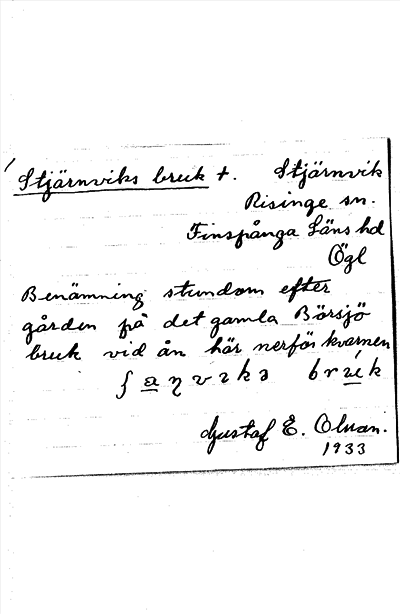 Stjärnviks bruk +. Stjärnvik
Risinge sn.
Finspånga Läns hd
Ögl
Benämning stundom efter
gården på det gamla Börsjö
bruk vid ån här nerför kvarnen
Gustaf E. Olman.
1933